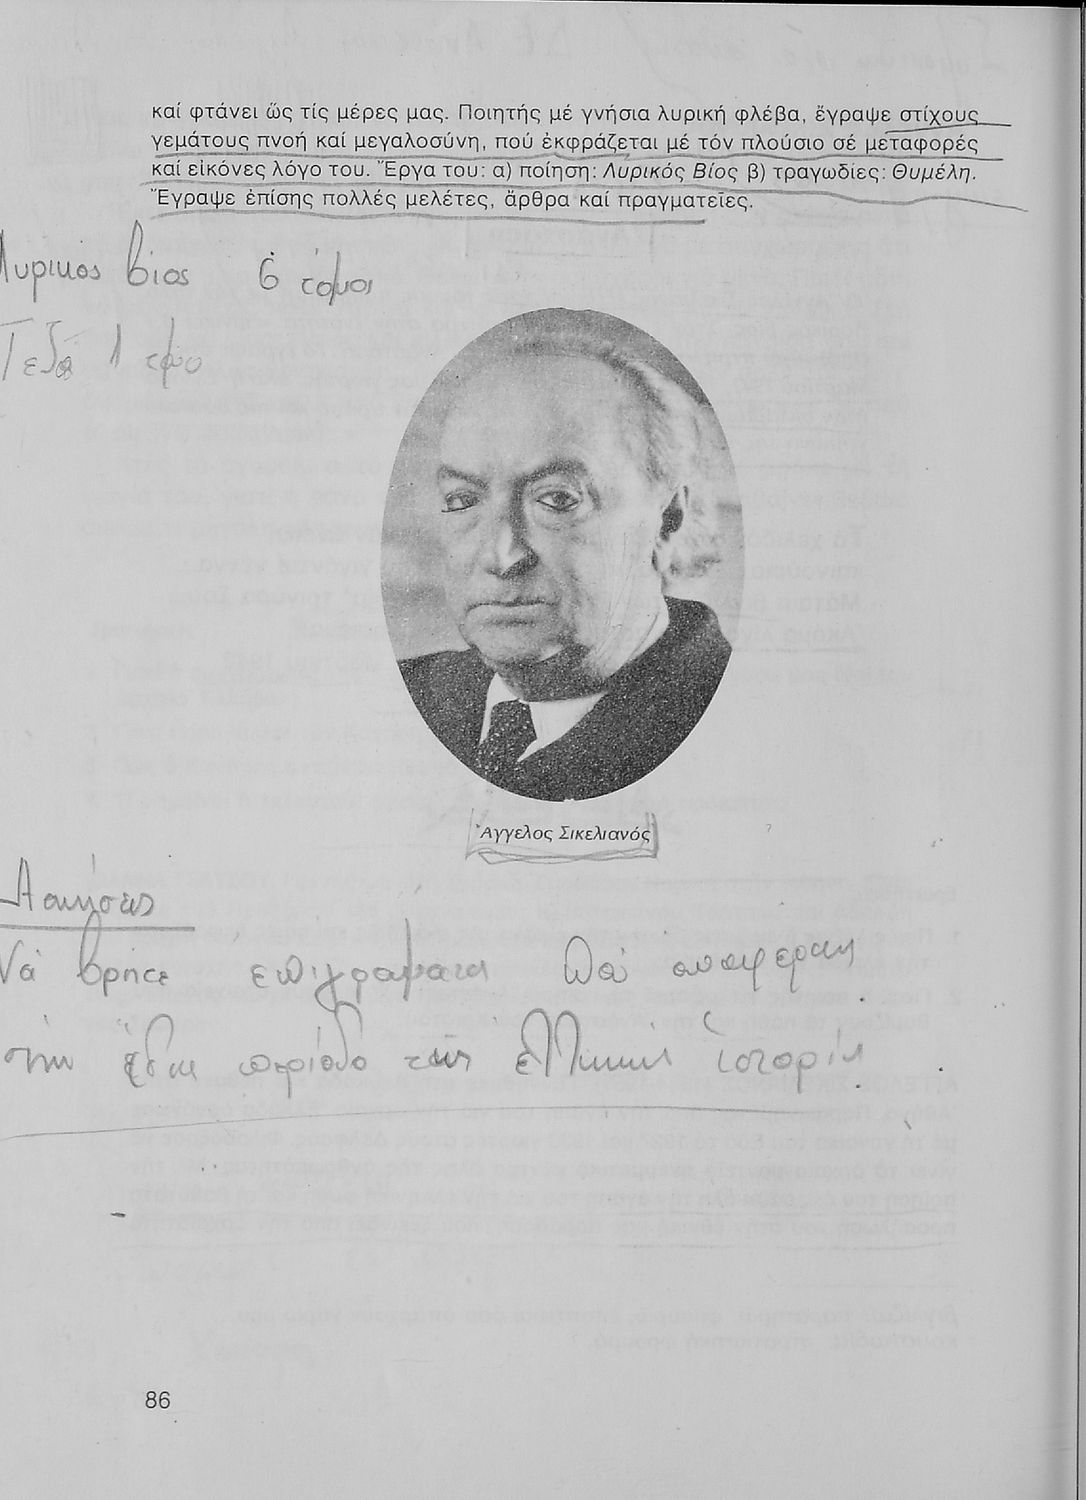 καί φτάνει ὥς τίς μέρες μας. Ποιητής μέ γνήσια λυρική φλέβα, ἔγραψε στίχους
γεμάτους πνοή καί μεγαλοσύνη, πού ἐκφράζεται μέ τόν πλούσιο σέ μεταφορές
καί εἰκόνες λόγο του. Ἔργα του: α) ποίηση: Λυρικός Βίος β) τραγωδίες: Θυμέλη.
Ἔγραψε ἐπίσης πολλές μελέτες, ἄρθρα καί πραγματεῖες.
Λυρικός βίος 6 τόμοι
1
Ἄγγελος Σικελιανός
Ἀσκήσεις
Νά βρῆτε ἐπιγράμματα πού
στήν περίοδο τῆς ἑλληνικῆς ἱστορία
86